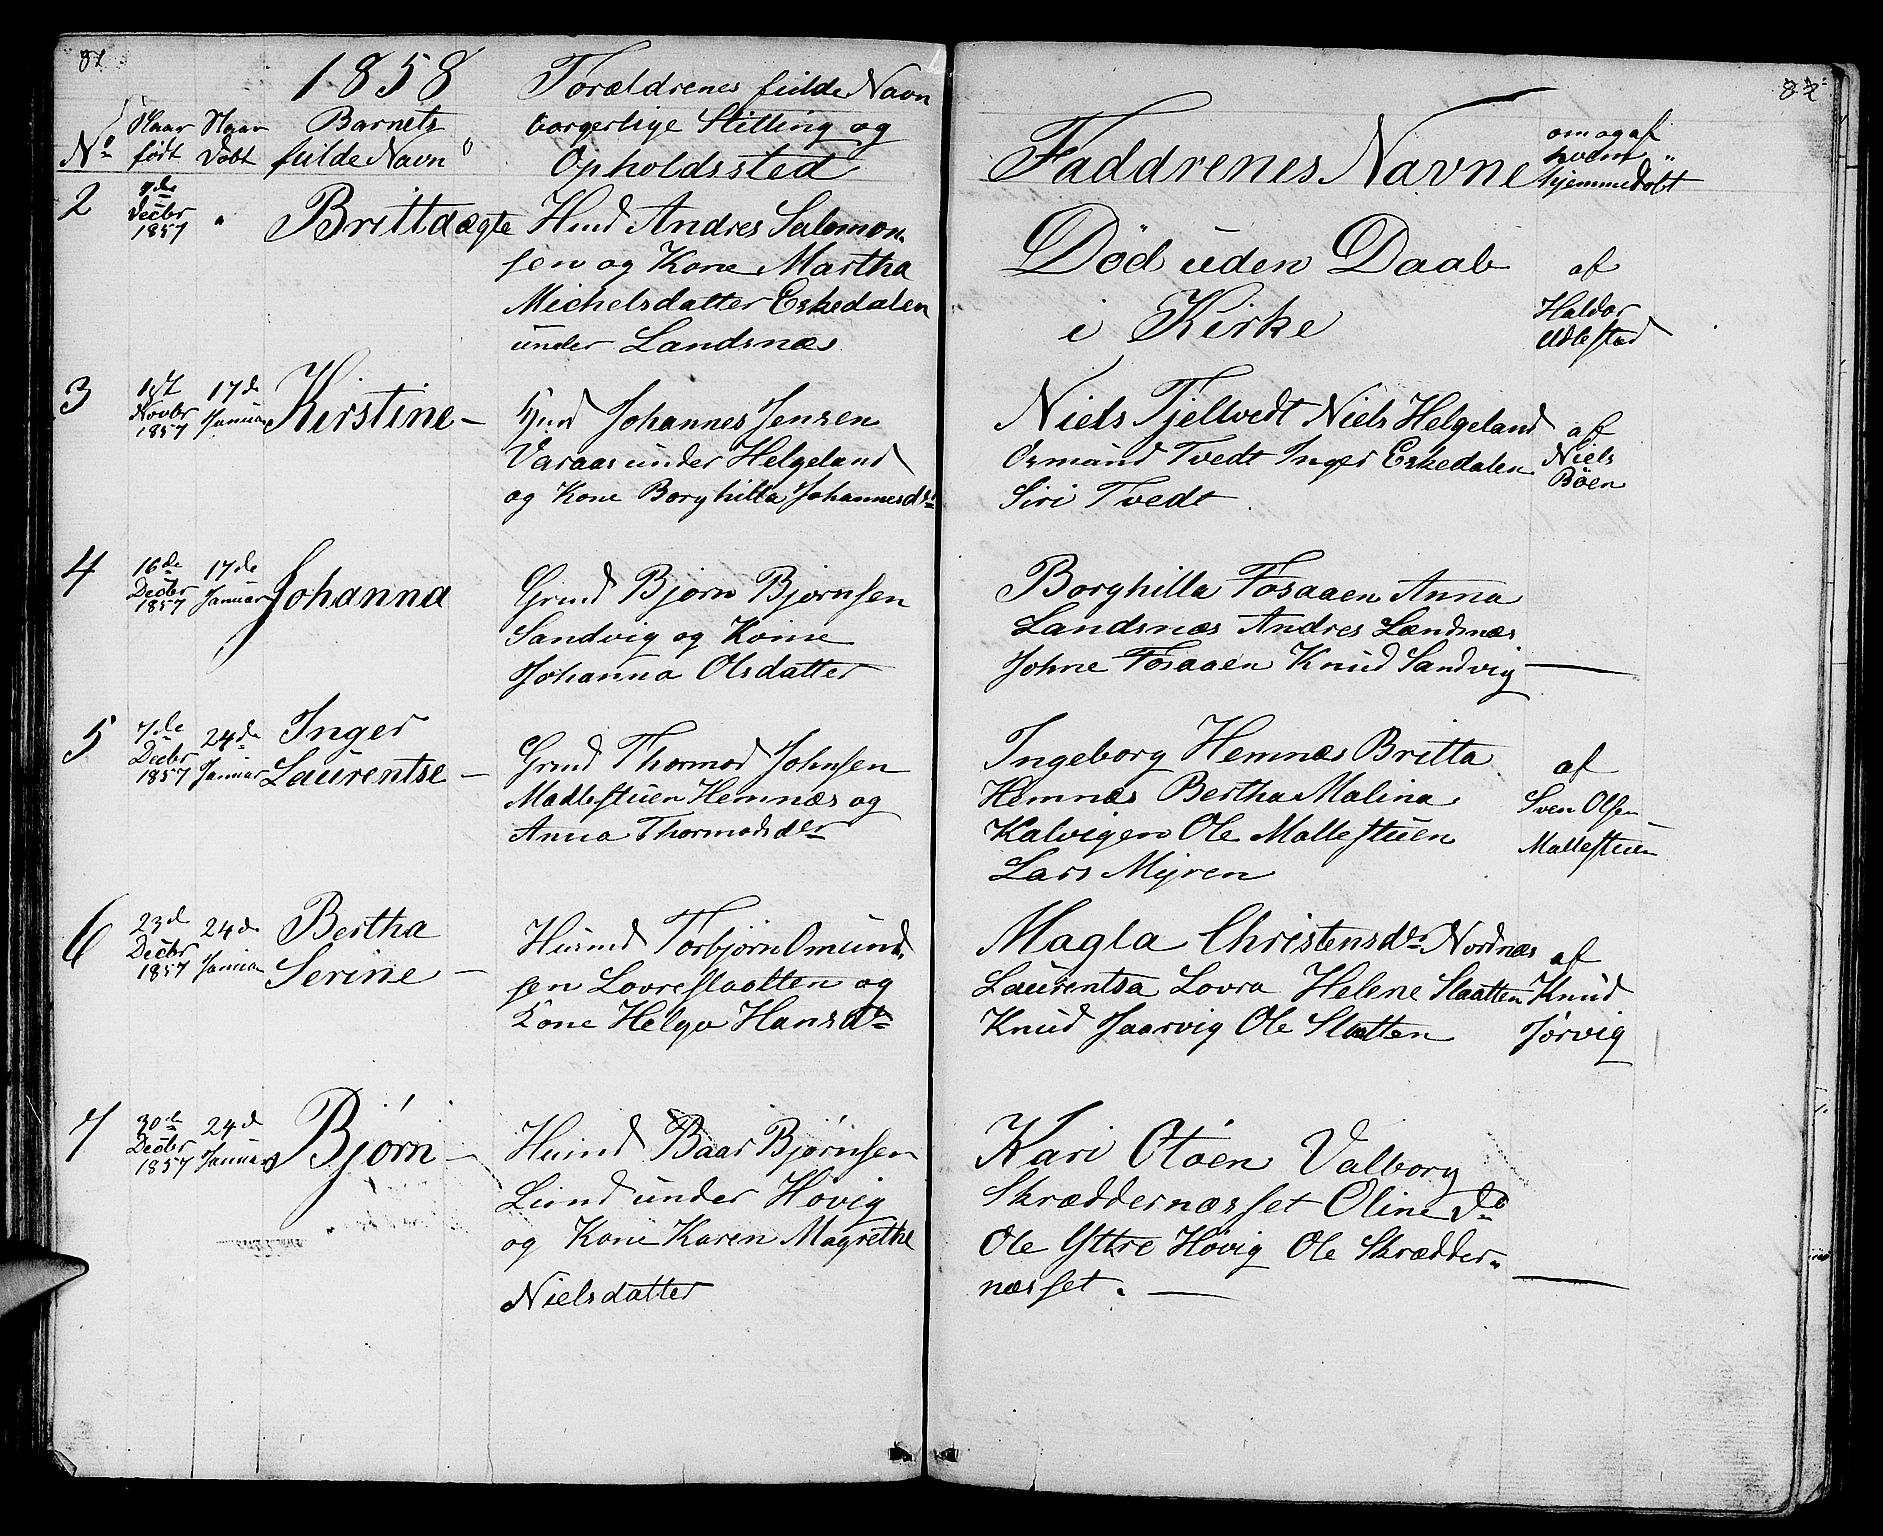 81
1858
No
Naar født
Naar Døbt
Barnets fulde Navn
Forældrenes fulde Navn
borgerlige Stilling og
Opholdssted
2
7de Decbr 1857
"
Britta
ægte
Hmd Andres Salomon-
sen og Kone Martha
Michelsdatter Eskedalen
under Landsnæs
3
Novbr 1857
17de Januar
Kirstine -
Hmd Johannes Jensen
Varaas under Helgeland
og Kone Borghilla Johannesdr
4
16de Decbr 1857
17de Januar
Johanna
Grmd Bjørn Bjørnsen
Sandvig og Kone
Johanna Olsdatter
5
7de Decbr 1857
24de Januar
Inger
Laurentse -
Grmd Thormod Johnsen
Madlestuen Hemnæs og
Anna Thormodsdr
6
23de Decbr 1857
24de Januar
Bertha
Serine -
Husmd Torbjørn Omund-
sen Lovreslaatten og
Kone Helga Hansdr
7
30de Decbr 1857
24de Januar
Bjørn -
Husmd Baar Bjørnsen
Lund under Høvig
og Kone Karen Magrethe
Nielsdatter
82
Faddrenes Navne
om og af
hvem
hjemmedøbt
Død uden Daab
i Kirke
af
Haldor
Udlestad
Niels Tjeltvedt Niels Helgeland
Osmund Tvedt Inger Eskedalen
Siri Tvedt
af
Niels
Bøen
Borghilla Fosaaen Anna
Landsnæs Andres Landsnæs
Johne Fosaaen Knud Sandvig -
Ingeborg Hemnæs Britta
Hemnæs Bertha Malina
Kalvigen Ole Mallestuen
Lars Myren
af
Sven Olsen
Mallestuen
Magla Christensdr Nordnæs
Laurentsa Lovra Helene Slaatten
Knud Jaarvig Ole Slatten
af
Knud
Jørvig
Kari Otøen Valborg
Skræddernæsset Oline do
Ole Yttre Høvig Ole Skrædder-
næsset. -